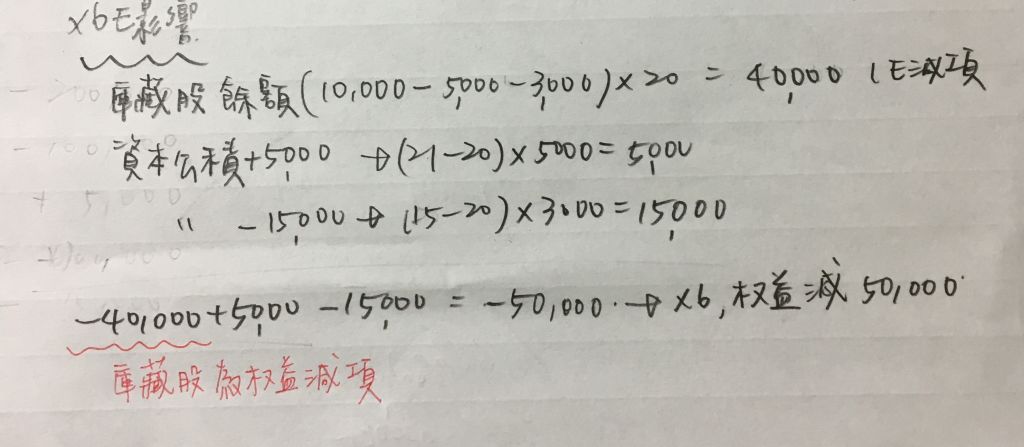 x6 E影響
庫藏股餘額(10,000-5,000-3,000)×20 = 40,000 (E減項
資本公積+5,000 → (21-20)×5000=5,000
〃 -15,000 → (15-20)×3000=15,000
-40,000+5,000-15,000 = -50,000. → x6,权益減50,000.
庫藏股為权益減項